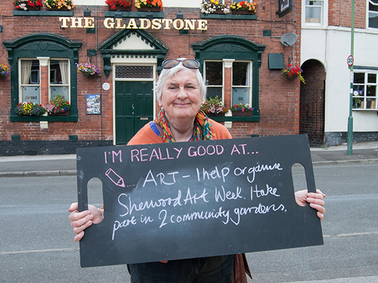 THE GLADSTONE
I'M REALLY GOOD AT...
...ART - I help organise
Sherwood Art Week. I take
part in 2 community gardens.